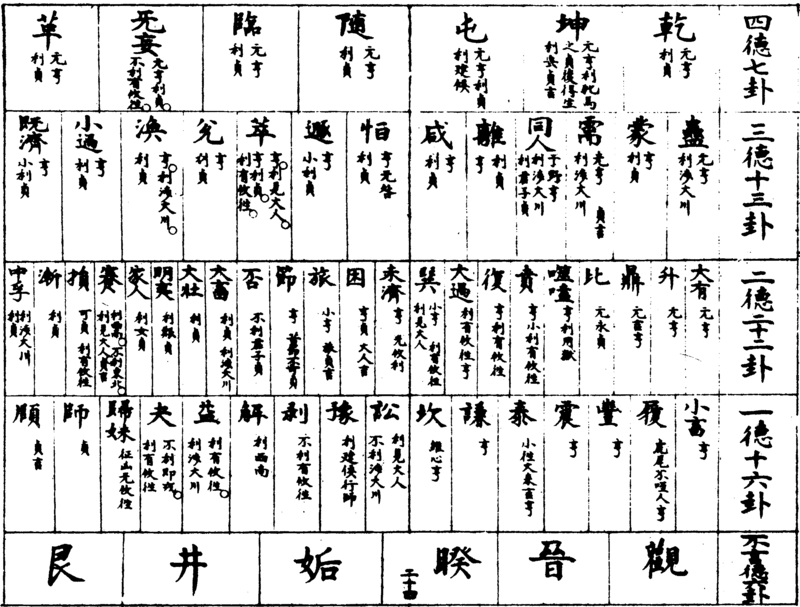 四德七卦
乾
元亨
利貞
坤
元亨利牝馬
之貞後得主
利安貞吉
屯
元亨利貞
利建候
隨
元亨
利貞
臨
元亨
利貞
无妄
元亨利貞
不利有攸往
革
元亨
利貞
三德十三卦
蠱
元亨
利涉大川
蒙
亨
利貞
需
光亨 貞吉
利涉大川
同人
于野亨
利涉大川
利君子貞
離
利貞
亨
咸
亨
利貞
恒
亨无咎
利貞
遯
亨
小利貞
萃
亨利見大人
亨利貞
利有攸往
兌
亨
利貞
渙
亨利涉大川
利貞
小過
亨
利貞
既濟
亨
小利貞
二德二十二卦
大有
元亨
升
元亨
鼎
元吉亨
比
元永貞
噬嗑
亨利用獄
賁
亨小利有攸往
復
亨利有攸往
大過
利有攸往亨
巽
小亨 利有攸往
利見大人
未濟
亨 无攸利
困
亨貞大人吉
旅
小亨 旅貞吉
節
亨 苦節不可貞
否
不利君子貞
大畜
利貞 利涉大川
大壯
利貞
明夷
利艱貞
家人
利女貞
蹇
利西南 不利東北
利見大人貞吉
損
可貞 利有攸往
漸
利貞
中孚
利涉大川
利貞
一德十六卦
小畜
亨
履
虎尾不咥人亨
豐
亨
震
亨
泰
小往大來吉亨
謙
亨
坎
維心亨
訟
利見大人
不利涉大川
豫
利建侯行師
剥
不利有攸往
解
利西南
益
利有攸往
利涉大川
夬
不利即戎
利有攸往
歸妹
征凶无攸往
師
貞
頤
貞吉
不言德卦
觀
晉
睽
二十四
姤
井
艮